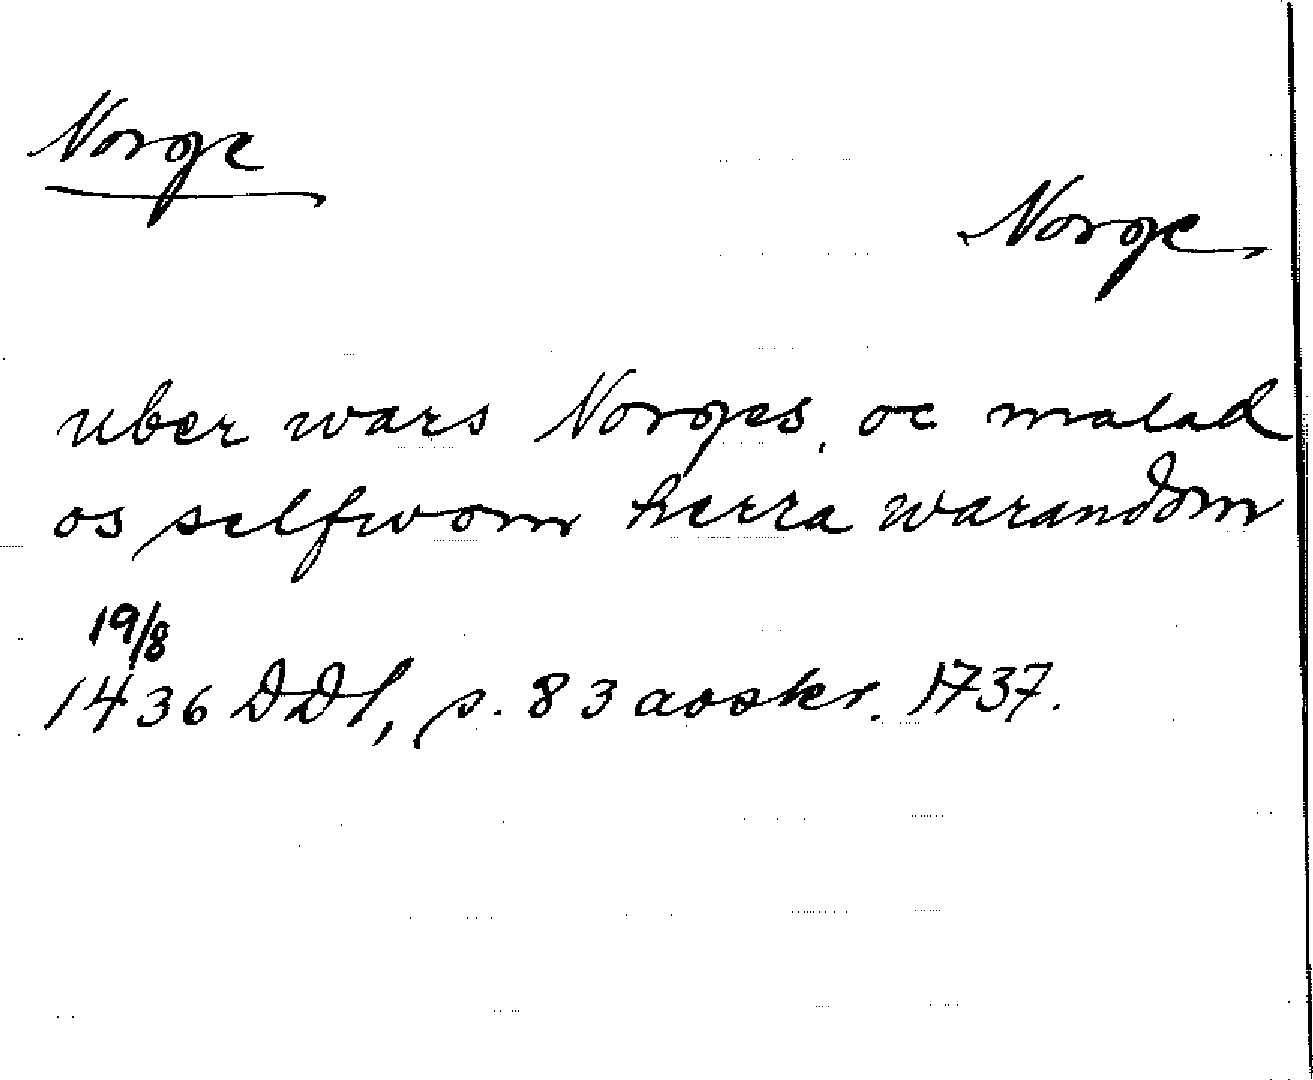 Norge
Norge
uber wars Norges, oc malad
os selfwom herra warandom
19/8
1436 DDl, s. 83 avskr. 1737.